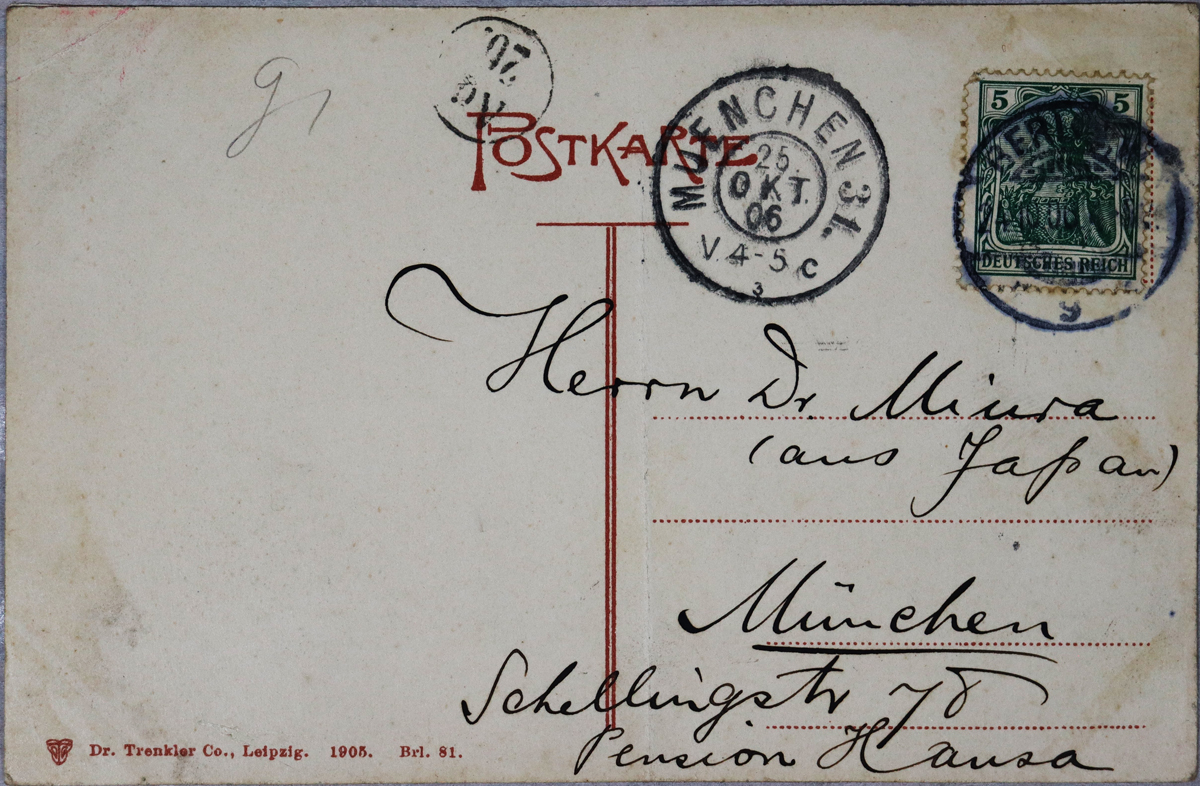 91
20.
Aa
POSTKARTE
MUENCHEN 31.
25.
OKT.
06
V 4-5 c
3
5 5
DEUTSCHES REICH
BERLIN
9
Herrn Dr. Miura
(aus Japan)
München
Schellingstr 78
Pension Hansa
Dr. Trenkler Co., Leipzig. 1905. Brl. 81.